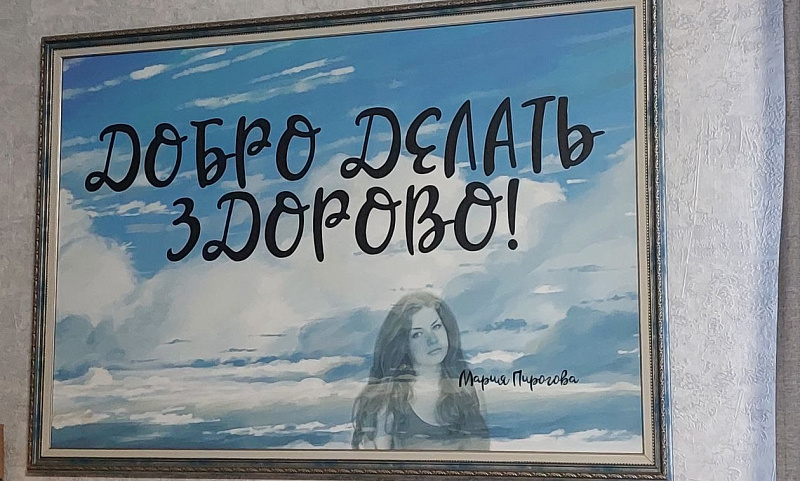 ДОБРО ДЕЛАТЬ
ЗДОРОВО!
Мария Пирогова